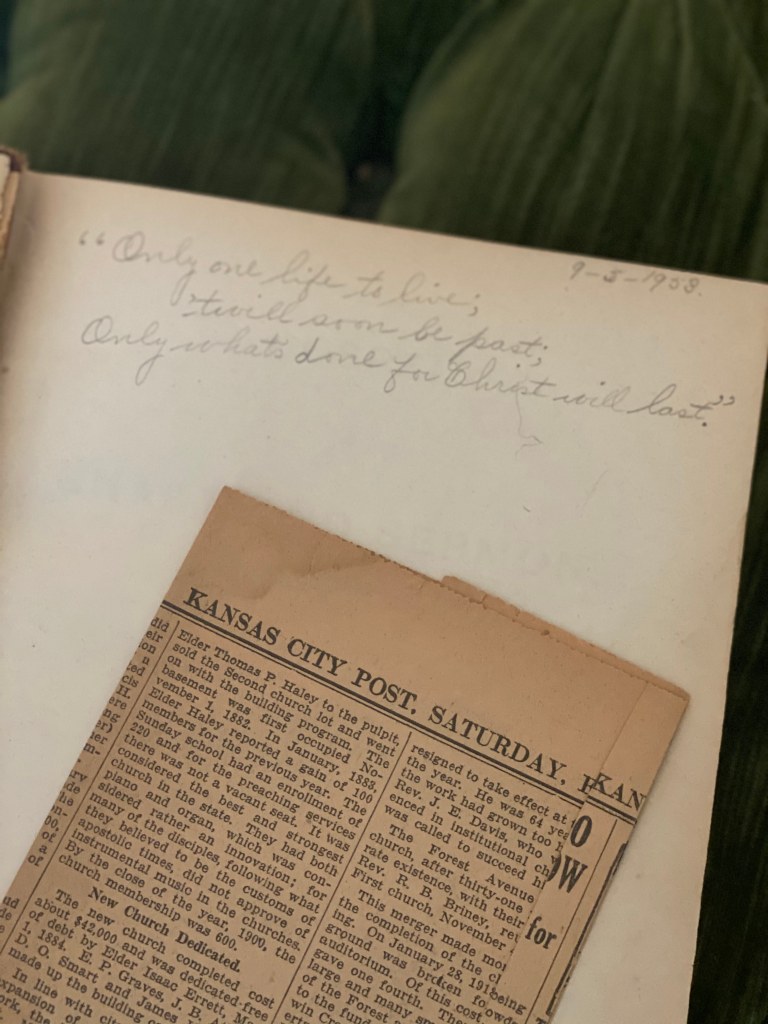 9-3-1953.
"Only one life to live;
'twill soon be past;
Only whats done for Christ will last."
KANSAS CITY POST, SATURDAY,
KAN
did
eir
on
n
ted
cis
H.
ere
ng
er)
ner
m-
ry
he
on-
00,
of.
a
of
Elder Thomas P. Haley to the pulpit,
sold the Second church lot and went
on with the building program. The
basement was first occupied No-
vember 1, 1882. In January, 1883,
Elder Haley reported a gain of 100
members for the previous year. The
Sunday school had an enrollment of
220 and for the preaching services
there was not a vacant seat. It was
considered the best and strongest
church in the state. They had both
piano and organ, which was con-
sidered rather an innovation; for
many of the disciples, following what
they believed to be the customs of
apostolic times, did not approve of
instrumental music in the churches.
By the close of the year, 1900, the
church membership was 600.
New Church Dedicated.
The new church completed cost
about $42,000 and was dedicated free
of debt by Elder Isaac Errett,
1, 1884. E. P. Graves, J. B.
D. O. Smart, and James
made up the building
In line with
expansion of
resigned to take effect at
the year. He was 64
the work had grown too
Rev. J. E. Davis, who
enced in institutional ch
was called to succeed h
The Forest Avenue
church, after thirty-one
rate existence, with their
Rev. R. B. Briney, re
First church, November
This merger made
the completion of the
ing. On January 28,
ground was broken fo
auditorium. Of this cost,
gave one fourth.
large and many
of the Forest
to the fund
win
O
OW
for
being